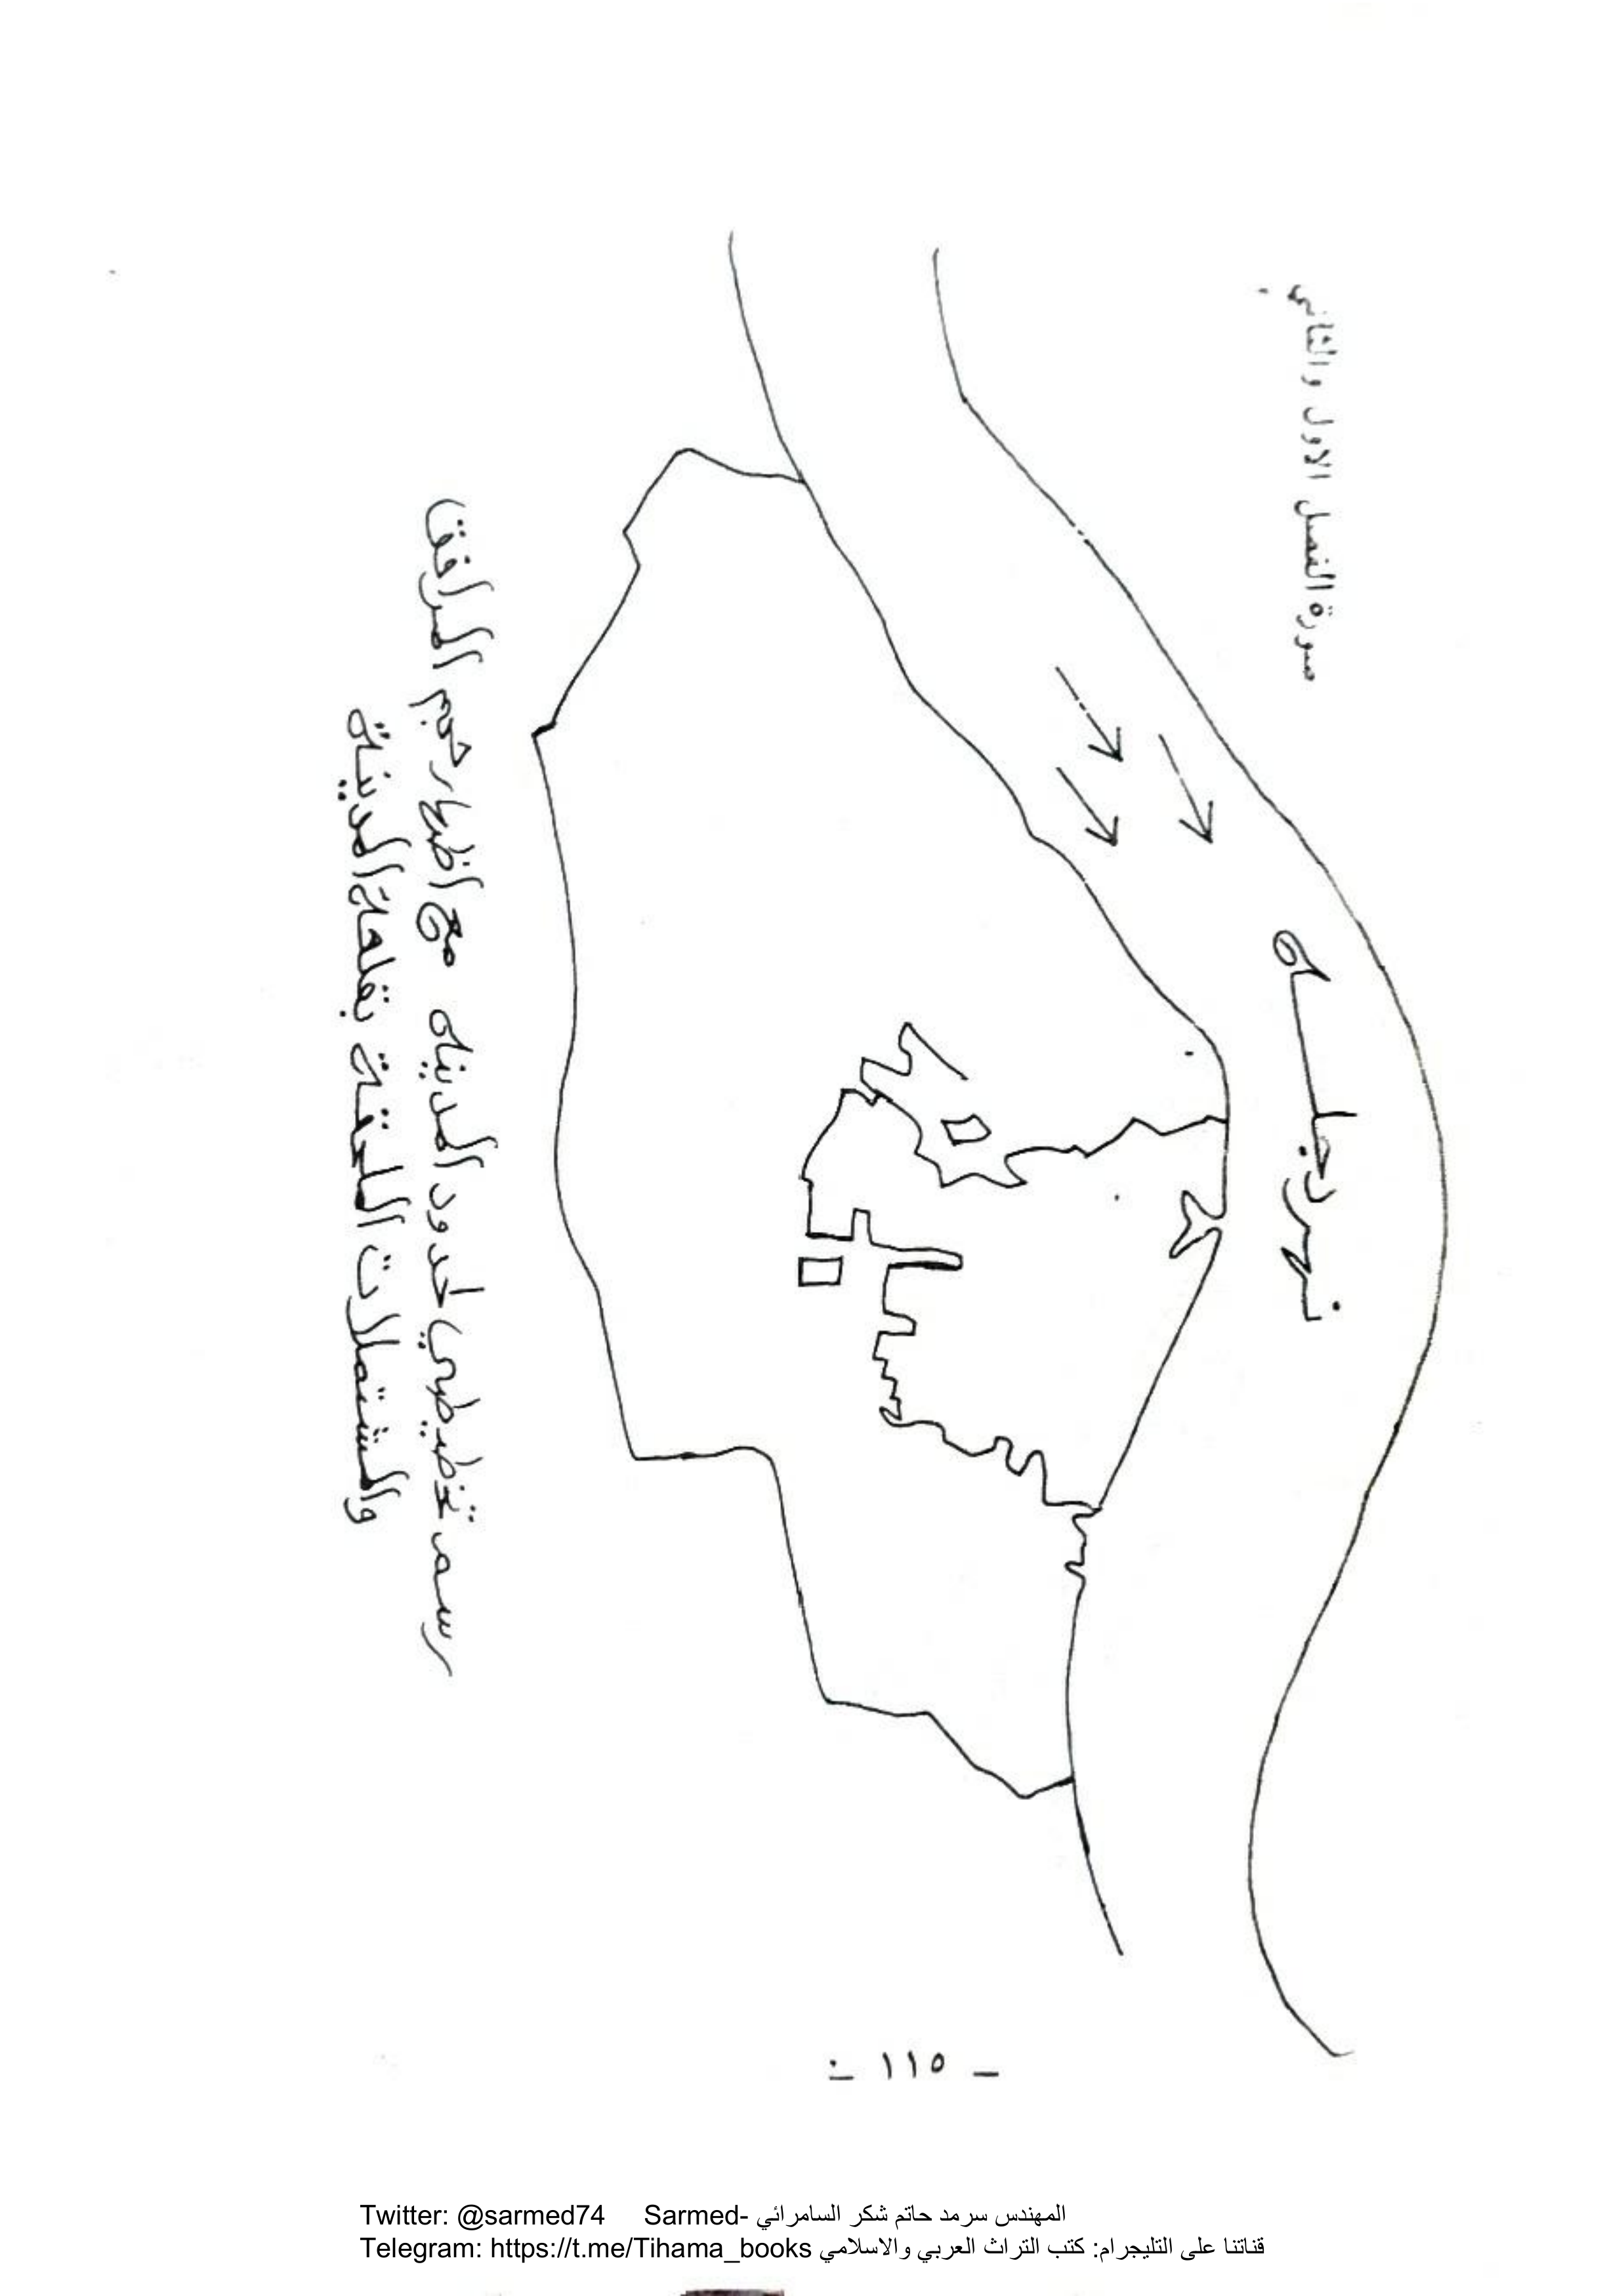 صورة الفصل الاول والثاني
نهر دجلــه
رسم تخطيطي لحدود المدينه مع اظهار حجم المرافق
والمشتملات الملحقة بقلعة المدينة
- ١١٥ -
Twitter: @sarmed74 Sarmed- المهندس سرمد حاتم شكر السامرائي
Telegram: https://t.me/Tihama_books قناتنا على التليجرام: كتب التراث العربي والاسلامي